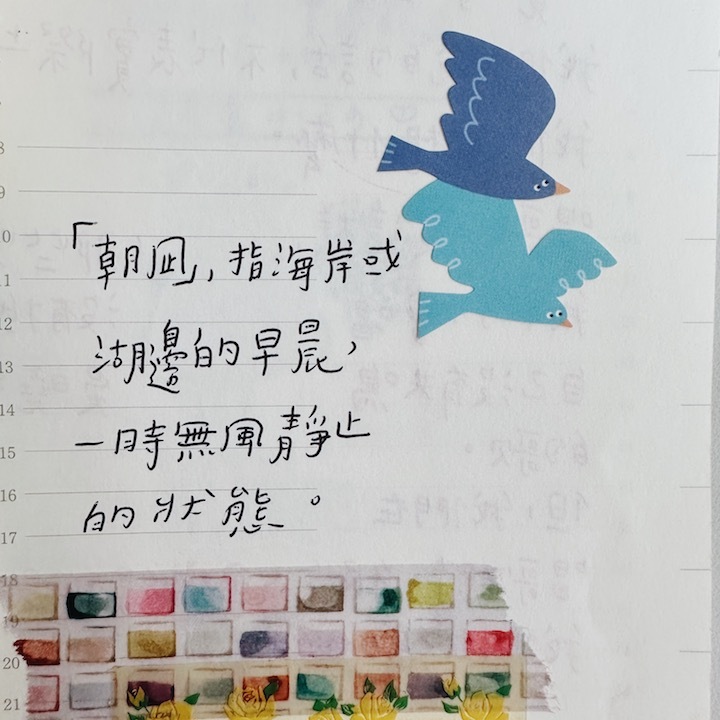 「朝凪，指海岸或
湖邊的早晨，
一時無風靜止
的狀態。
8
9
10
11
12
13
14
15
16
17
18
19
20
21